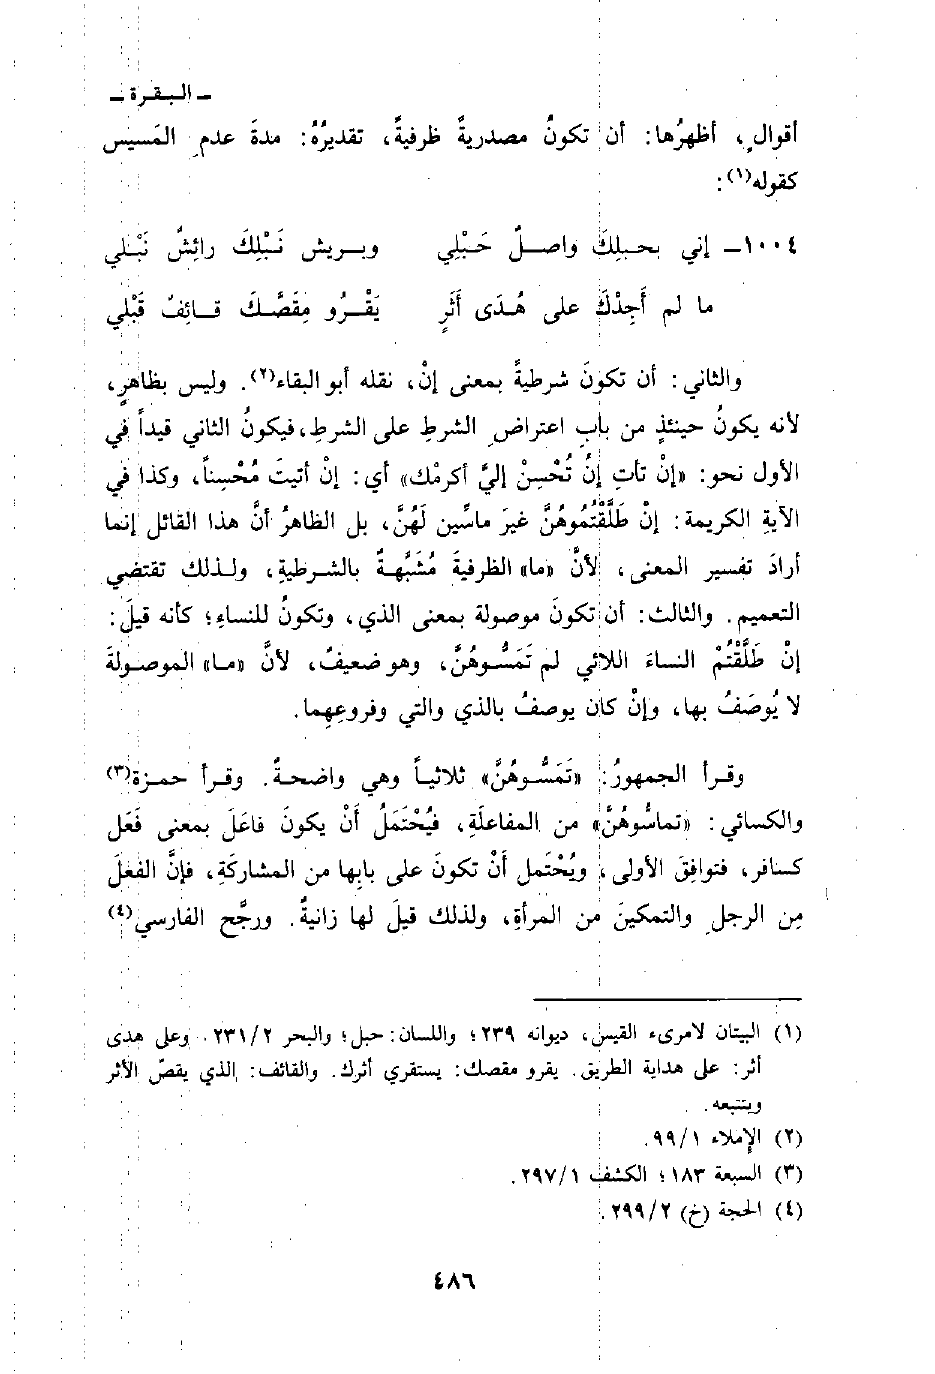 ـ البـقـرة ـ
أقوالٍ، أظهرُها: أن تكونُ مصدريةً ظرفيةً، تقديرُهُ: مدةَ عدمِ المَسيس
كقوله(١):
١٠٠٤ـ إني بحبلِكَ واصلٌ حَبْلِي وبريش نَبْلِكَ رائِشٌ نَبْلي
ما لم أَجِدْكَ على هُدَى أَثَرٍ يَقْرُو مِقَصَّكَ قائِفٌ قَبْلي
والثاني: أن تكونَ شرطيةً بمعنى إنْ، نقله أبو البقاء(٢). وليس بظاهرٍ،
لأنه يكونُ حينئذٍ من بابِ اعتراضِ الشرطِ على الشرطِ، فيكونُ الثاني قيداً في
الأول نحو: «إنْ تأتِ إنْ تُحْسِنْ إليَّ أكرمْك» أي: إنْ أتيتَ مُحْسِناً، وكذا في
الآيةِ الكريمة: إنْ طَلَّقْتُمُوهُنَّ غيرَ ماسِّين لَهُنَّ، بل الظاهرُ أنَّ هذا القائل إنما
أرادَ تفسير المعنى، لأنَّ «ما» الظرفيةَ مُشَبَّهةٌ بالشرطيةِ، ولذلك تقتضي
التعميم. والثالث: أن تكونَ موصولة بمعنى الذي، وتكونُ للنساءِ؛ كأنه قيلَ:
إنْ طَلَّقْتُمْ النساءَ اللائي لم تَمَسُّوهُنَّ، وهو ضعيفٌ، لأنَّ «ما» الموصولةَ
لا يُوصَفُ بها، وإنْ كان يوصفُ بالذي والتي وفروعِهما.
وقرأ الجمهورُ: «تَمَسُّوهُنَّ» ثلاثياً وهي واضحةٌ. وقرأ حمزة(٣)
والكسائي: «تماسُّوهُنَّ» من المفاعلَةِ، فيُحْتَمَلُ أَنْ يكونَ فاعَلَ بمعنى فَعَل
كسافر، فتوافِقَ الأولى، ويُحْتَمل أَنْ تكونَ على بابِها من المشاركَةِ، فإنَّ الفعْلَ
مِن الرجلِ والتمكينَ من المرأةِ، ولذلك قيلَ لها زانيةٌ. ورجَّح الفارسي(٤)
(١) البيتان لامرىء القيس، ديوانه ٢٣٩؛ واللسان: حبل؛ والبحر ٢٣١/٢. وعلى هدى
أثر: على هداية الطريق. يقرو مقصك: يستقري أثرك. والقائف: الذي يقصّ الأثر
ويتتبعه.
(٢) الإملاء ٩٩/١.
(٣) السبعة ١٨٣؛ الكشف ٢٩٧/١.
(٤) الحجة (خ) ٢٩٩/٢.
٤٨٦